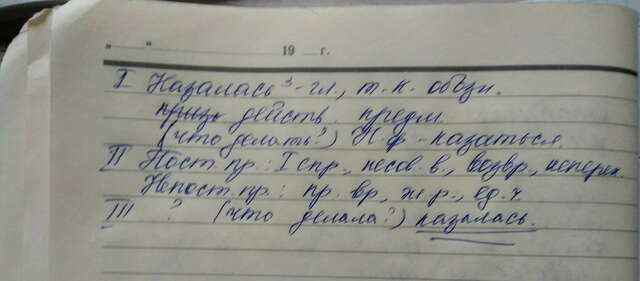 „ “ 19 г.
I Казалась³ - гл., т. к. обозн.
призн действ. предм.
(что делать?) Н. ф. - казаться.
II Пост. пр.: I спр., несов. в., возвр., неперех.
Непост. пр.: пр. вр., ж. р., ед. ч.
III ? (что делала?) казалась.